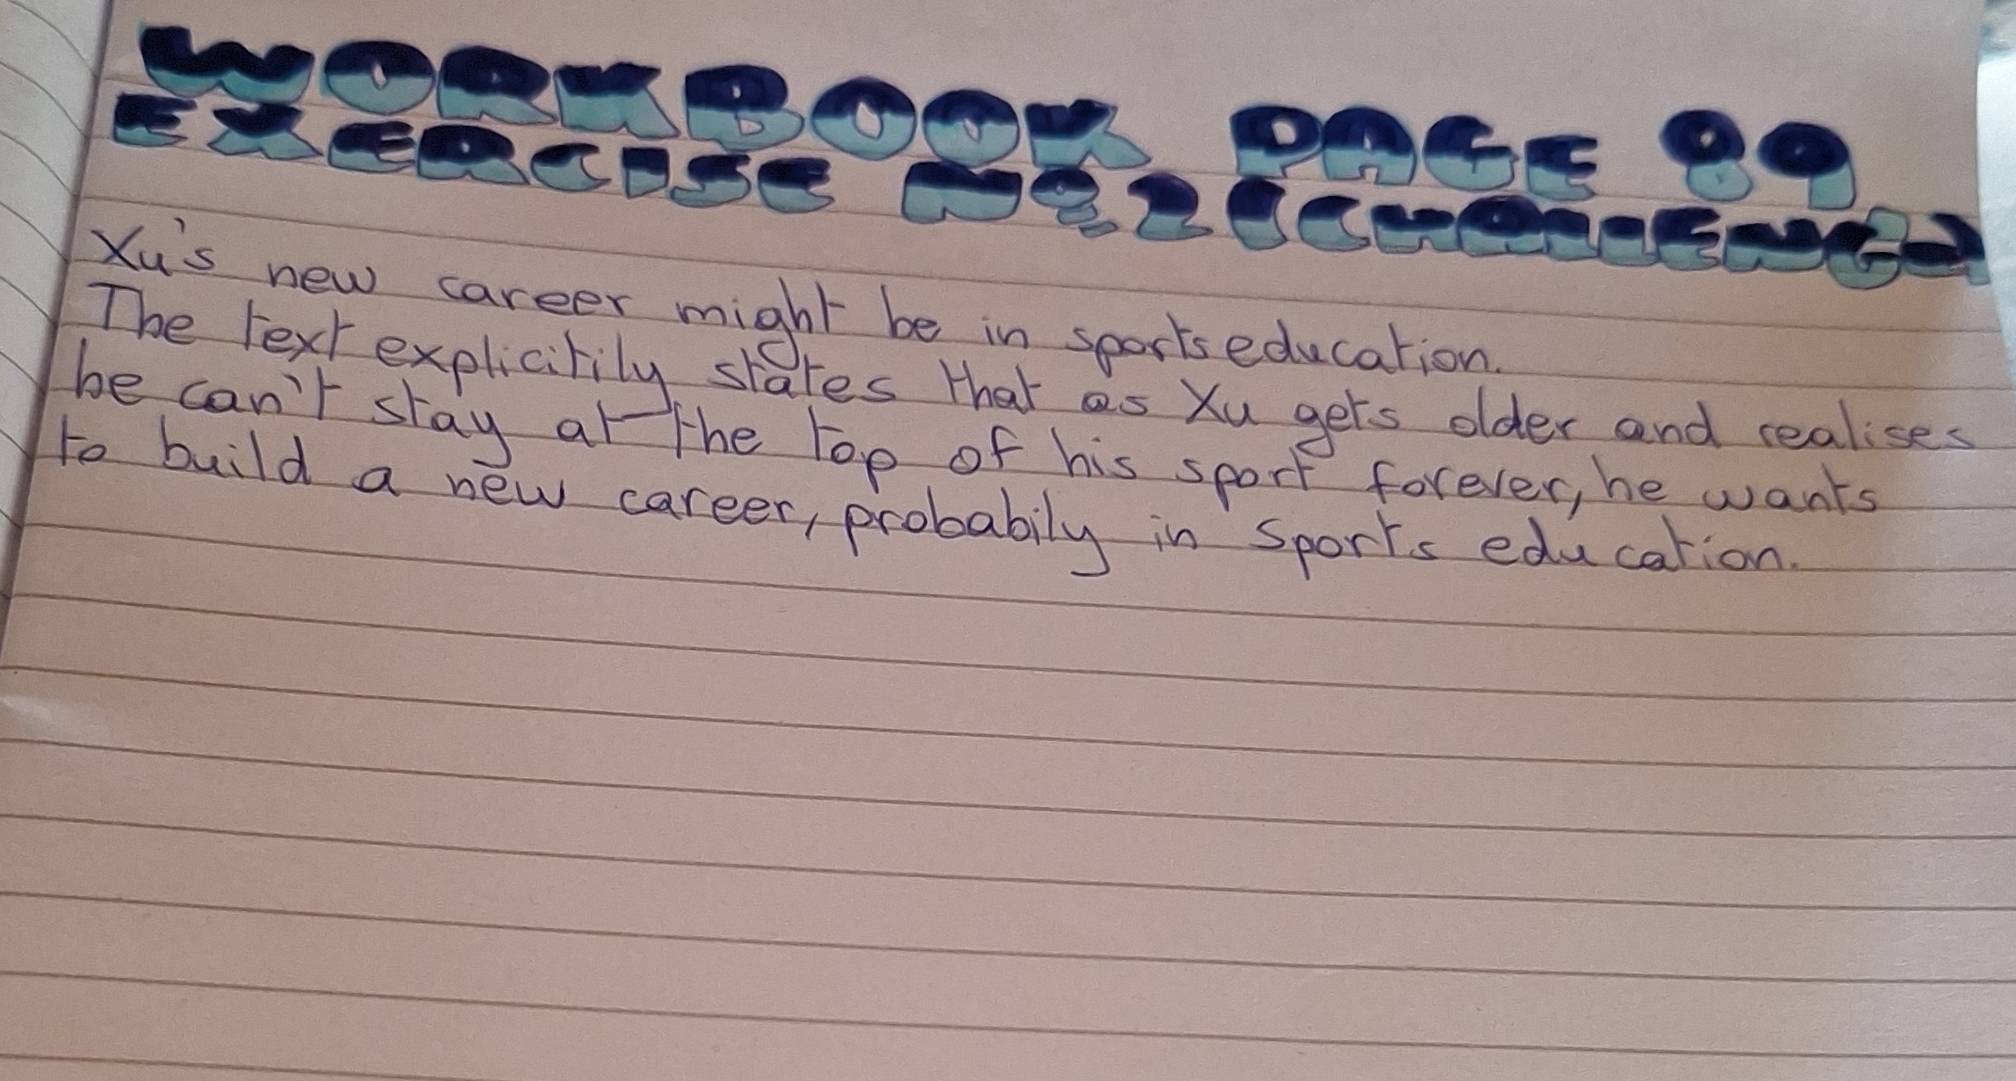 WORKBOOK PAGE 89
EXERCISE Nº2 (CHALLENGE)
Xu's new career might be in sports education.
The text explicitily states that as Xu gets older and realises
he can't stay at the top of his sport forever, he wants
to build a new career, probabily in sports education.